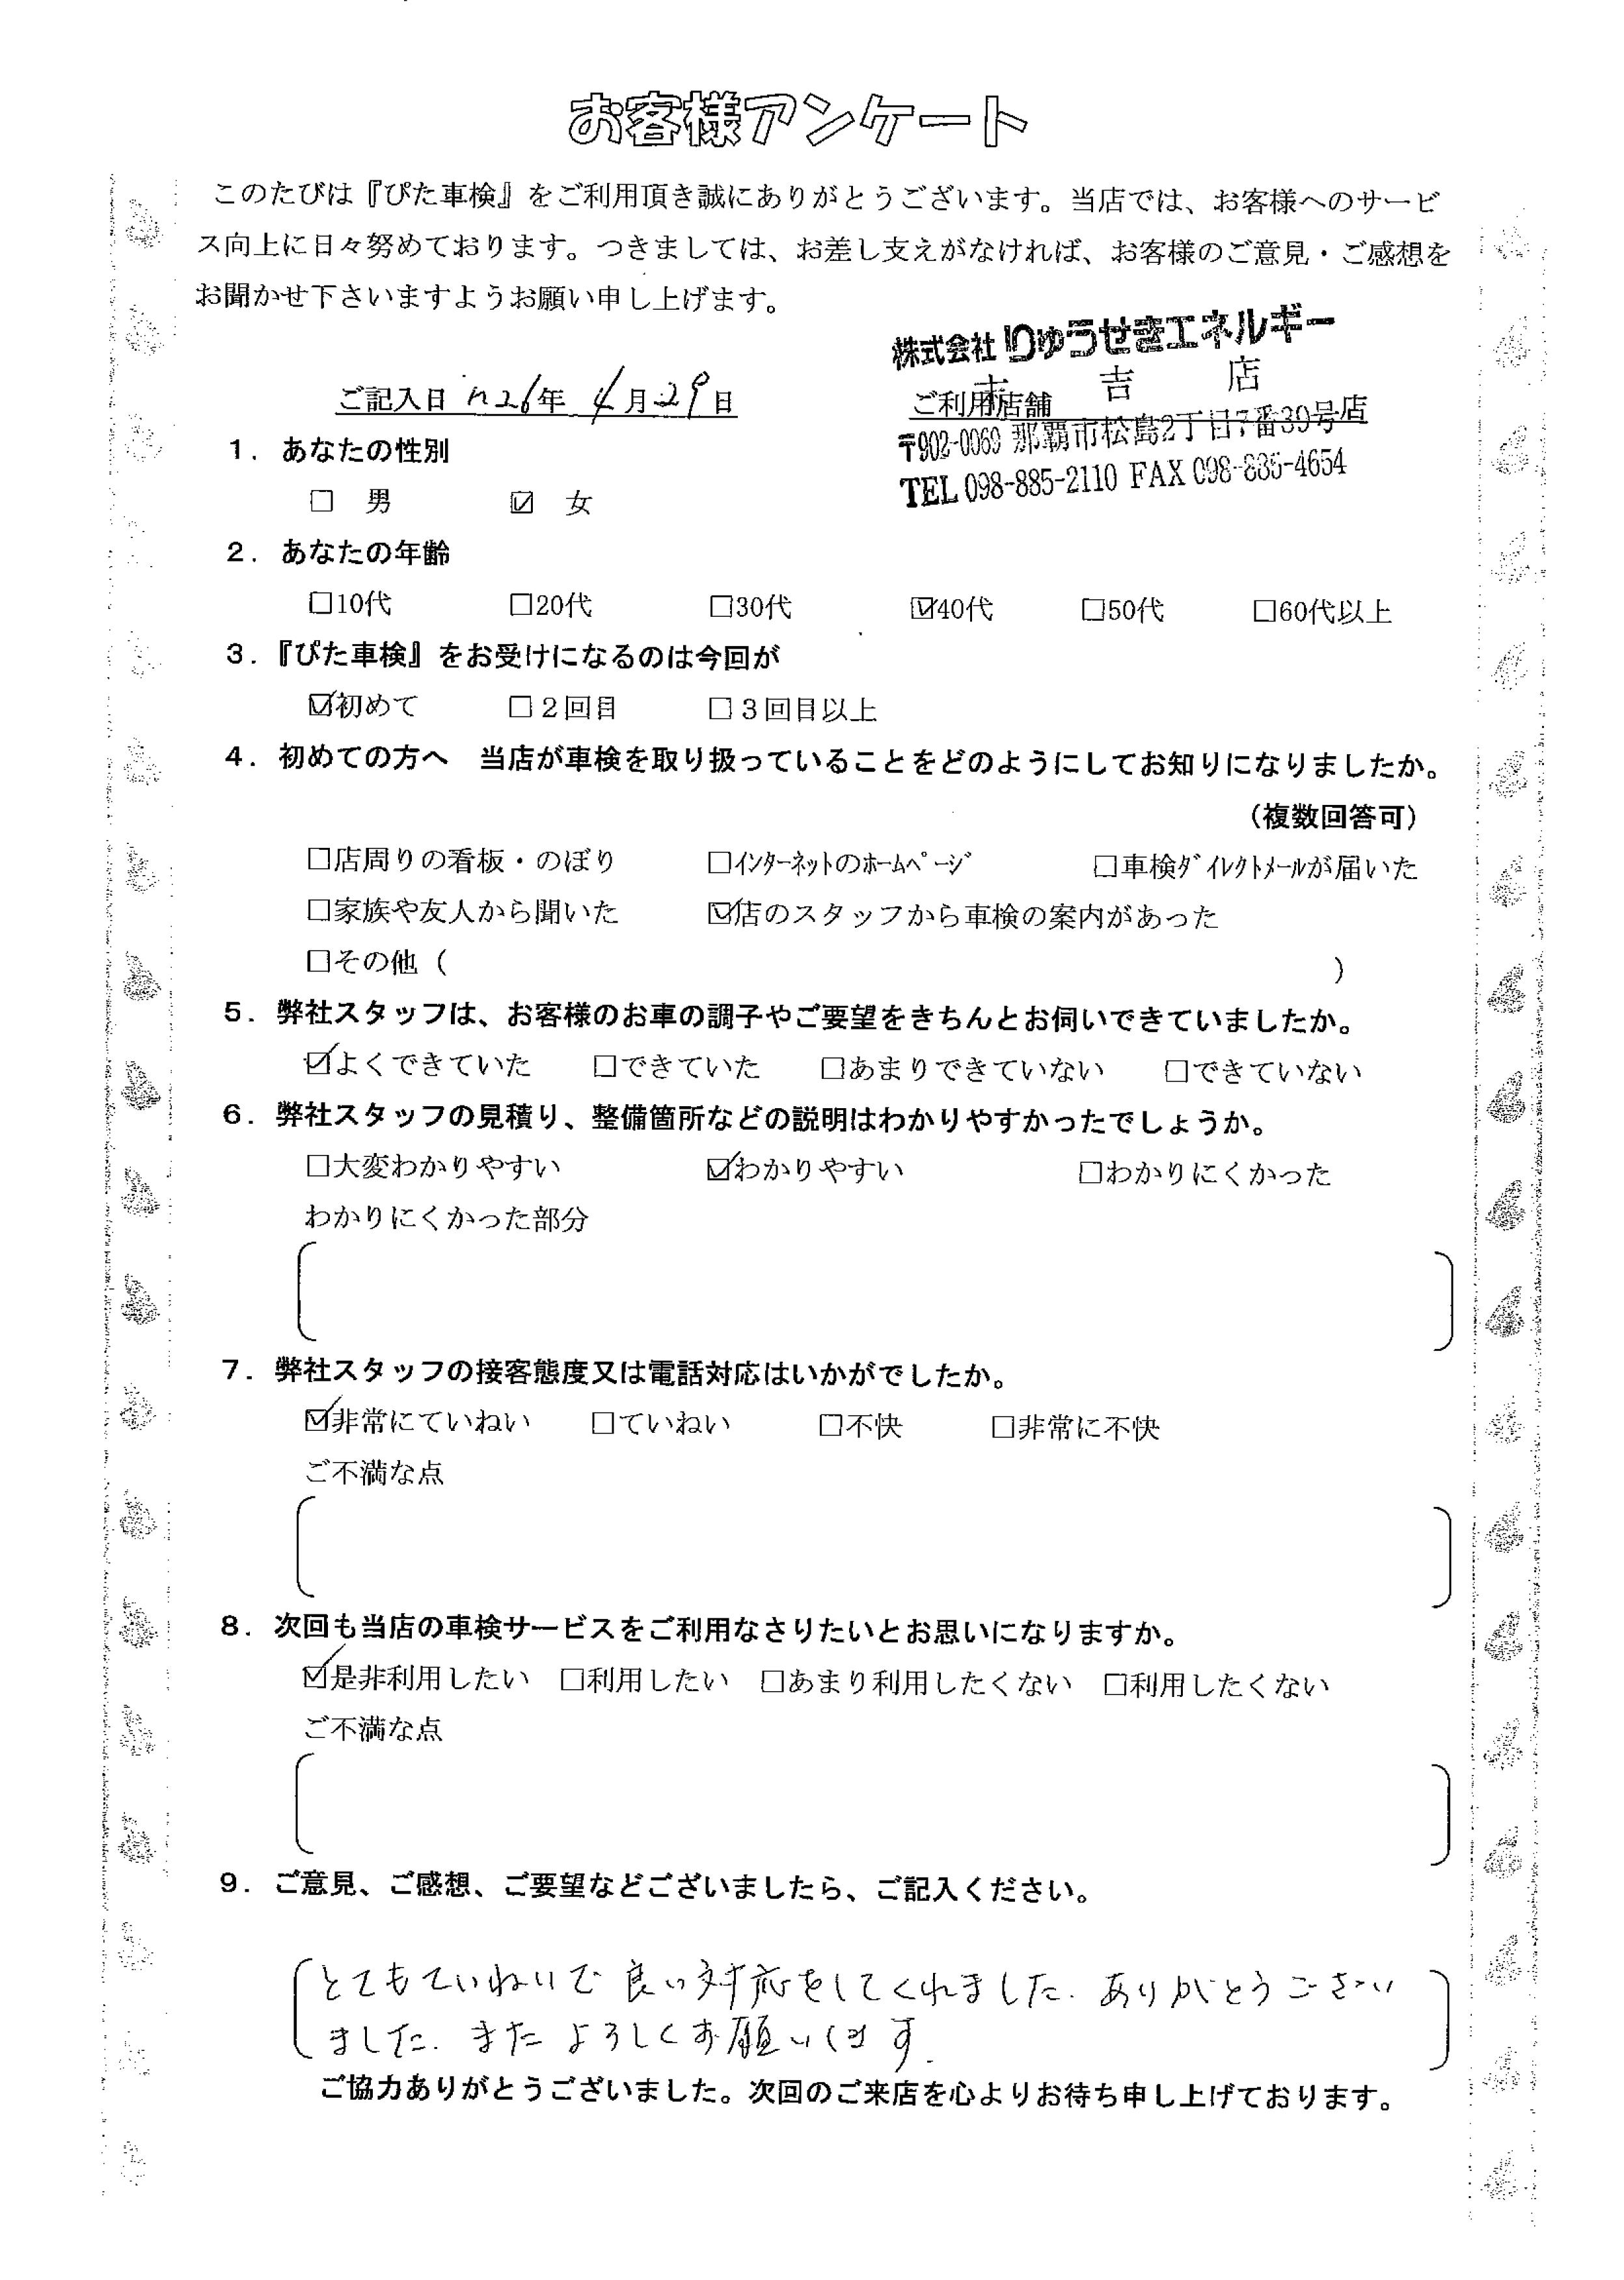 お客様アンケート
このたびは『ぴた車検』をご利用頂き誠にありがとうございます。当店では、お客様へのサービ
ス向上に日々努めております。つきましては、お差し支えがなければ、お客様のご意見・ご感想を
お聞かせ下さいますようお願い申し上げます。
株式会社りゅうせきエネルギー
吉 店
ご記入日 H26年 4月29日
ご利用店舗 店
〒902-0069 那覇市松島2丁目7番39号
TEL 098-885-2110 FAX 098-886-4654
1. あなたの性別
□ 男 ☑ 女
2. あなたの年齢
□10代 □20代 □30代 ☑40代 □50代 □60代以上
3.『ぴた車検』をお受けになるのは今回が
☑初めて □2回目 □3回目以上
4. 初めての方へ 当店が車検を取り扱っていることをどのようにしてお知りになりましたか。
（複数回答可）
□店周りの看板・のぼり □インターネットのホームページ □車検ダイレクトメールが届いた
□家族や友人から聞いた ☑店のスタッフから車検の案内があった
□その他（ ）
5. 弊社スタッフは、お客様のお車の調子やご要望をきちんとお伺いできていましたか。
☑よくできていた □できていた □あまりできていない □できていない
6. 弊社スタッフの見積り、整備箇所などの説明はわかりやすかったでしょうか。
□大変わかりやすい ☑わかりやすい □わかりにくかった
わかりにくかった部分
7. 弊社スタッフの接客態度又は電話対応はいかがでしたか。
☑非常にていねい □ていねい □不快 □非常に不快
ご不満な点
8. 次回も当店の車検サービスをご利用なさりたいとお思いになりますか。
☑是非利用したい □利用したい □あまり利用したくない □利用したくない
ご不満な点
9. ご意見、ご感想、ご要望などございましたら、ご記入ください。
とてもていねいで良い対応をしてくれました. ありがとうござい
ました. またよろしくお願いします.
ご協力ありがとうございました。次回のご来店を心よりお待ち申し上げております。